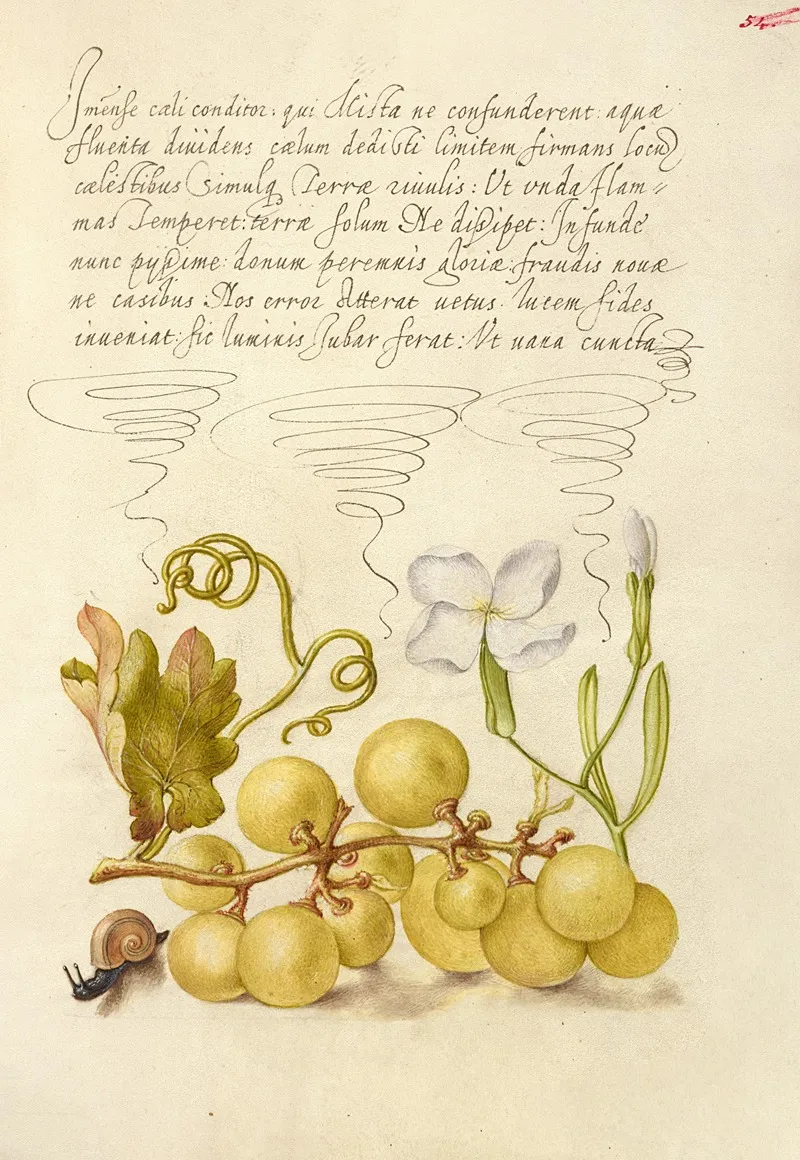 54.
Jmense cæli conditor: qui Mista ne confunderent: aquæ
fluenta diuidens cælum dedisti limitem firmans locū
cælestibus Simulq Terræ riuulis: Ut vnda flam=
mas Temperet: terræ solum Ne dissipet: Infunde
nunc pijssime: donum peremnis gloriæ: fraudis nouæ
ne casibus Nos error Atterat uetus. lucem fides
inueniat: sic luminis Jubar ferat: Vt uana cuncta